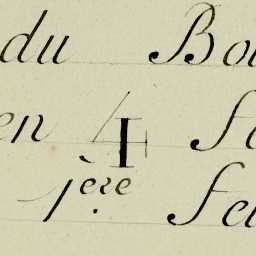 du Bo
en 4 f
1ère fe